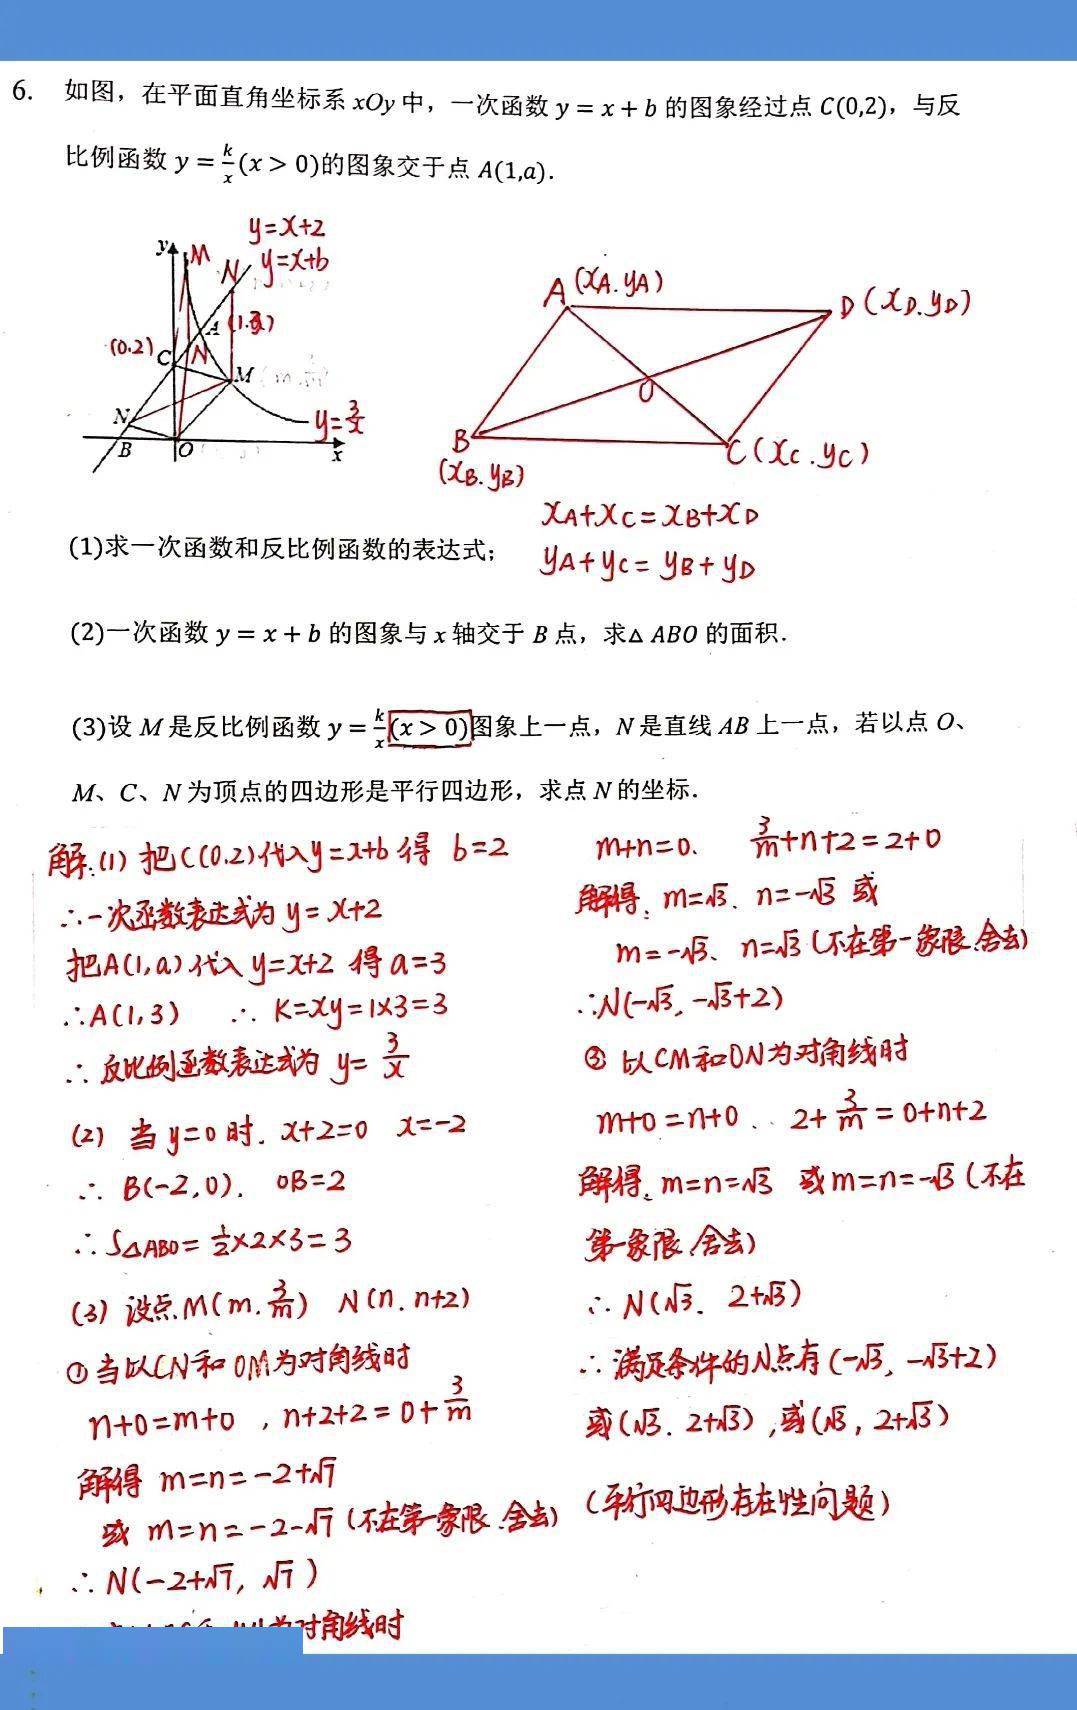 6. 如图，在平面直角坐标系 xOy 中，一次函数 y = x + b 的图象经过点 C(0,2)，与反
比例函数 y = k/x (x > 0)的图象交于点 A(1,a).
y=x+2
y=x+b
y
M
N
A
(1.3)
(0.2)
C
N
M
N
B
O
x
y=3/x
A (xA.yA)
D (xD.yD)
O
B
(xB.yB)
C (xC.yC)
xA+xC=xB+xD
yA+yC=yB+yD
(1)求一次函数和反比例函数的表达式；
(2)一次函数 y = x + b 的图象与 x 轴交于 B 点，求△ ABO 的面积.
(3)设 M 是反比例函数 y = k/x (x > 0)图象上一点，N 是直线 AB 上一点，若以点 O、
M、C、N 为顶点的四边形是平行四边形，求点 N 的坐标.
解:(1) 把C(0.2)代入y=x+b 得 b=2
∴一次函数表达式为 y=x+2
把A(1,a)代入 y=x+2 得 a=3
∴A(1,3) ∴ K=xy=1×3=3
∴ 反比例函数表达式为 y= 3/x
(2) 当 y=0 时. x+2=0 x=-2
∴ B(-2,0). OB=2
∴ S△ABO= 1/2×2×3=3
(3) 设点M(m. 3/m) N(n. n+2)
① 当以CN和OM为对角线时
n+0=m+0 , n+2+2=0+ 3/m
解得 m=n=-2+√7
或 m=n=-2-√7 (不在第一象限.舍去)
∴ N(-2+√7, √7)
为对角线时
m+n=0. 3/m+n+2=2+0
解得: m=√3. n=-√3 或
m=-√3、n=√3 (不在第一象限.舍去)
∴N(-√3, -√3+2)
③ 以CM和ON为对角线时
m+0=n+0 . . 2+ 3/m =0+n+2
解得: m=n=√3 或m=n=-√3 (不在
第一象限,舍去)
∴ N(√3. 2+√3)
∴ 满足条件的N点有 (-√3, -√3+2)
或(√3. 2+√3) ,或(√3, 2+√3)
(平行四边形存在性问题)